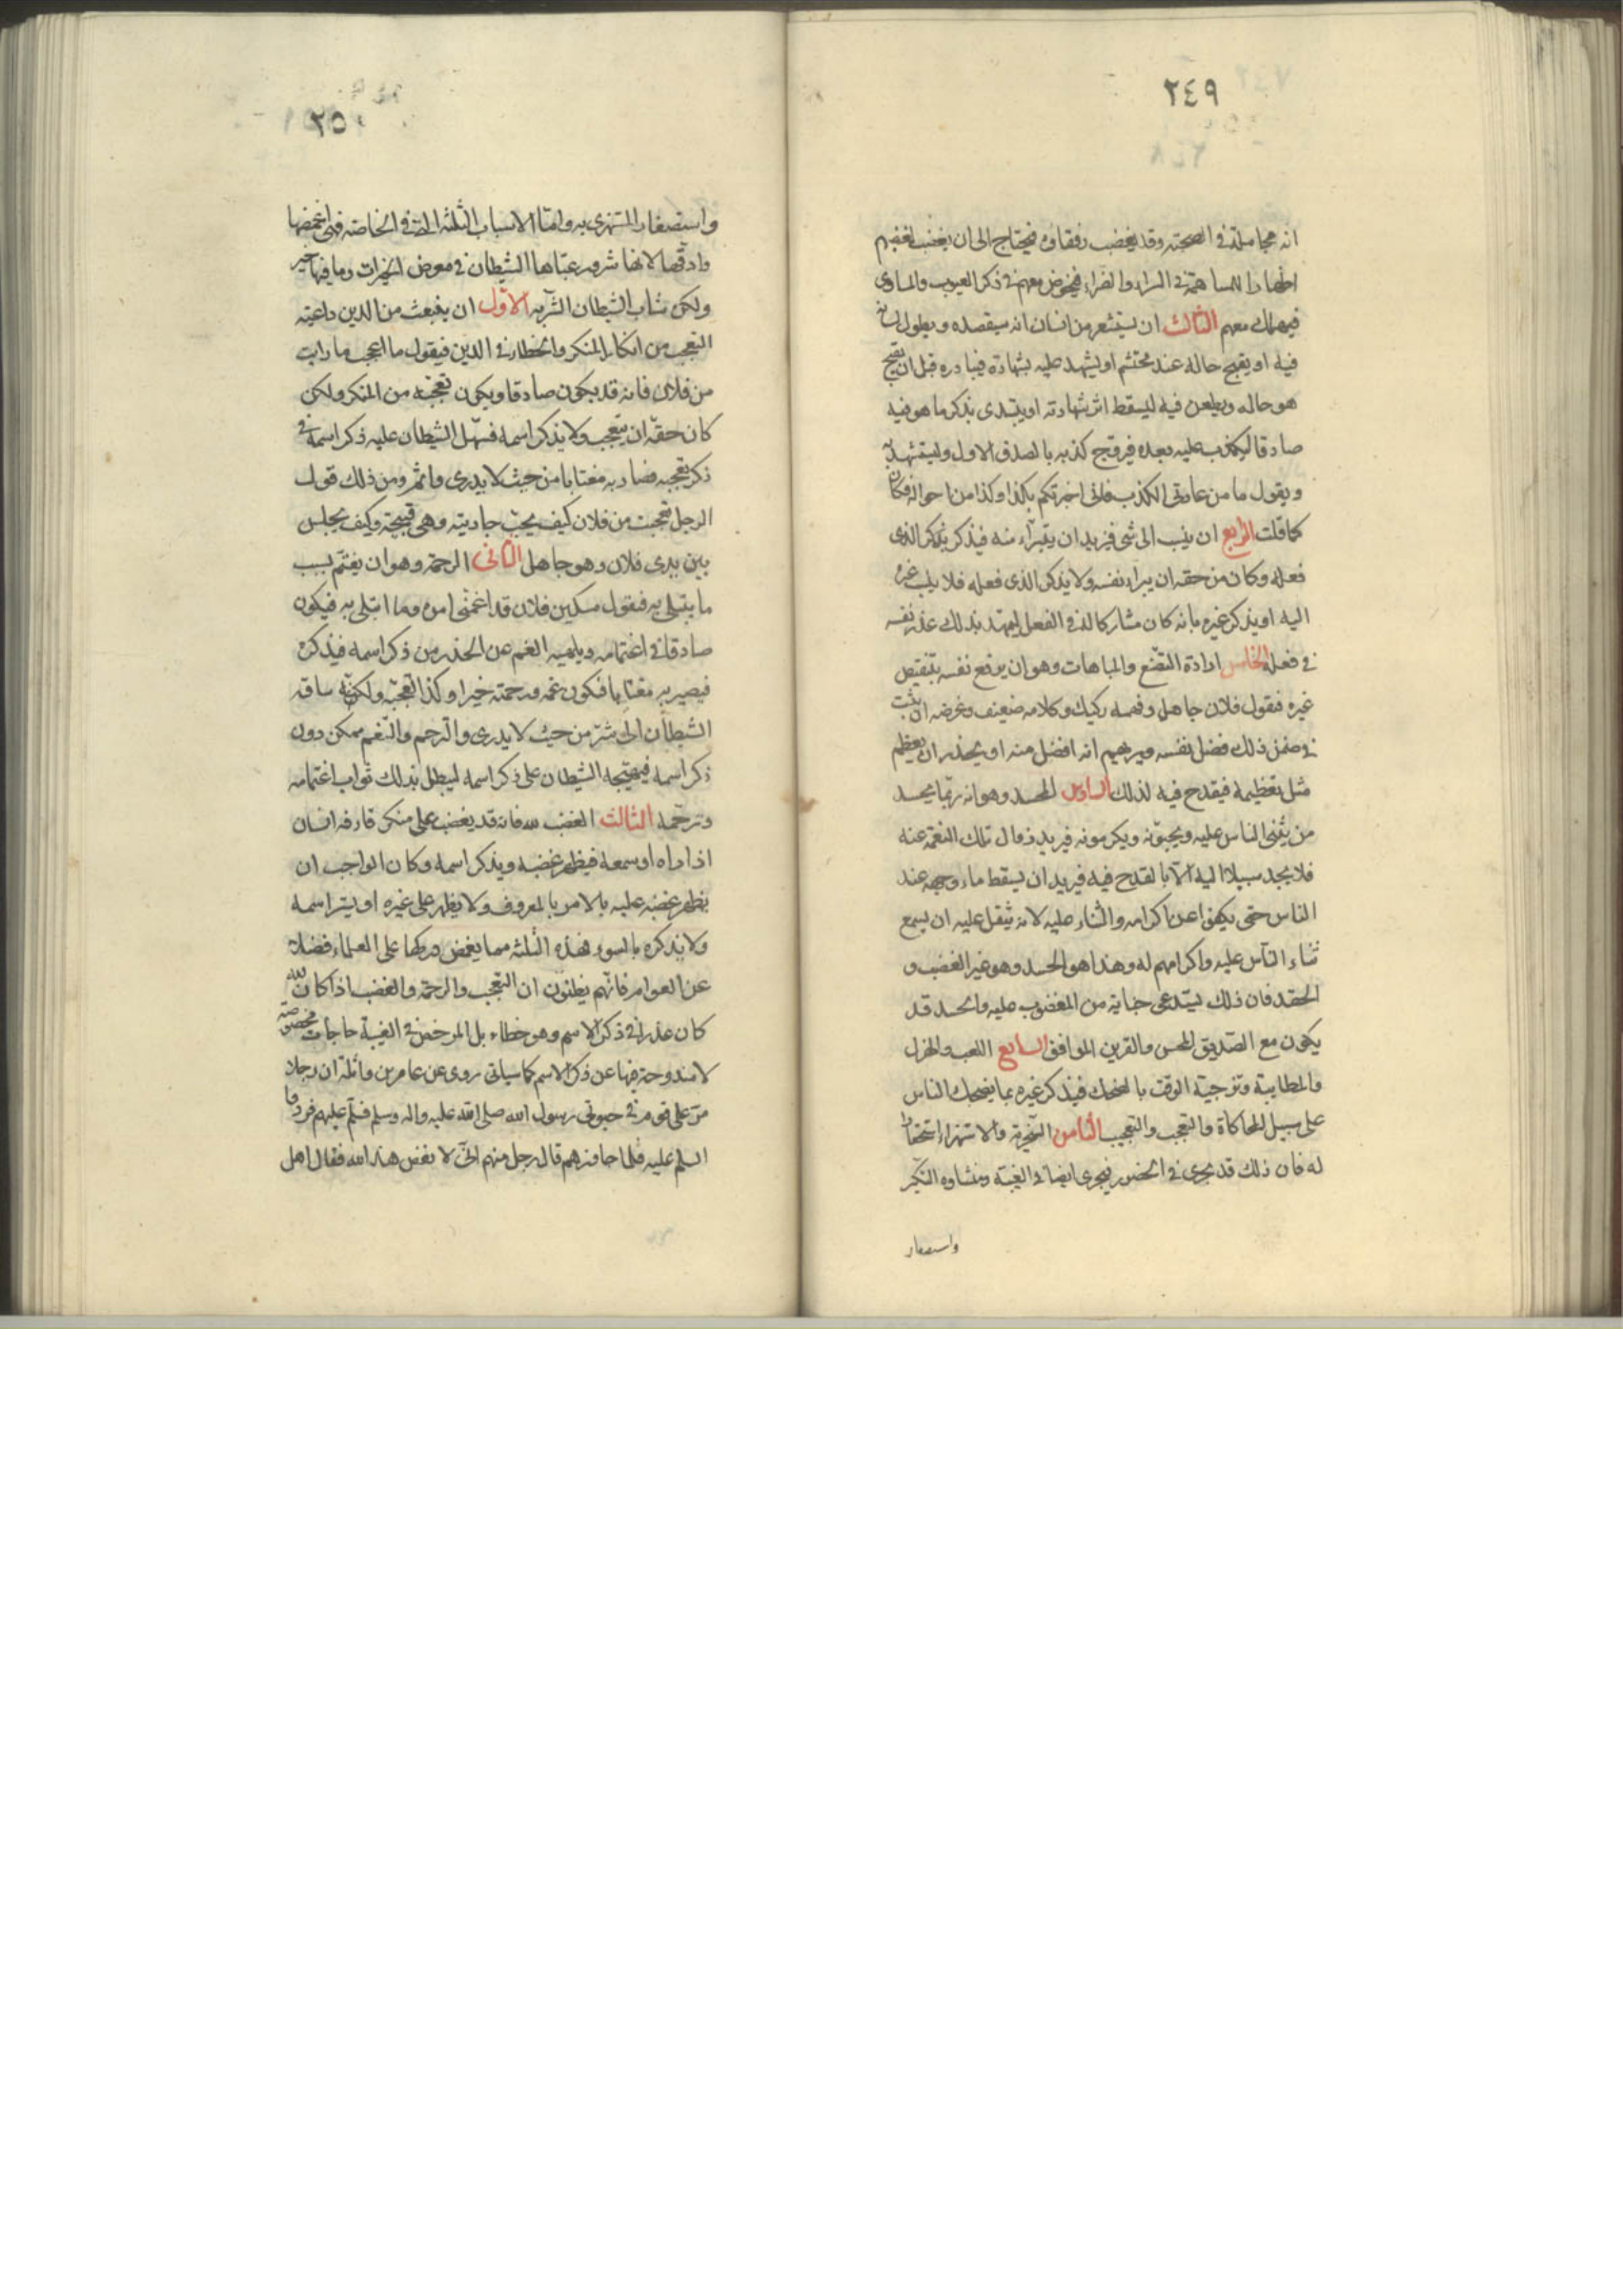 ٢٤٩
انه مجاملة في الصحبة وقد يغضب رفقاؤه فيحتاج الى ان يغضب لغضبهم
اظهارا للمساهمة في السراء والضراء فيخوض معهم في ذكر العيوب والمساوى
فيهلك معهم الثالث ان يستشعر من انسان انه سيقصده ويطول لسانه
فيه او يقبح حاله عند محتشم او يشهد عليه بشهادة فيبادره قبل ان يقبح
هو حاله ويطعن فيه ليسقط اثر شهادته او يبتدى بذكر ما هو فيه
صادقا ليكذب عليه بعده فيروج كذبه بالصدق الاول ويستشهد به
ويقول ما من عادتى الكذب فانى اخبرتكم بكذا وكذا من احواله فكان
كما قلت الرابع ان ينسب الى شئ فيريد ان يتبراء منه فيذكر بذكر الذى
فعله وكان من حقه ان يبراء نفسه ولا يذكر الذى فعله فلا ينسب غيره
اليه او يذكر غيره بانه كان مشاركا له في الفعل ليمهد بذلك عذر نفسه
في فعله الخامس ارادة التصنع والمباهات وهو ان يرفع نفسه بتنقيص
غيره فيقول فلان جاهل وفهمه ركيك وكلامه ضعيف وغرضه ان يثبت
في ضمن ذلك فضل نفسه ويريهم انه افضل منه او يحذر ان يعظم
مثل تعظيمه فيقدح فيه لذلك السادس الحسد وهو انه ربما يحسد
من يثنى الناس عليه ويحبونه ويكرمونه فيريد زوال تلك النعمة عنه
فلا يجد سبيلا اليه الا بالقدح فيه فيريد ان يسقط ماء وجهه عند
الناس حتى يكفوا عن اكرامه والثناء عليه لانه يثقل عليه ان يسمع
ثناء الناس عليه واكرامهم له وهذا هو الحسد وهو غير الغضب و
الحقد فان ذلك يستدعى جناية من المغضوب عليه والحسد قد
يكون مع الصديق المحسن والقرين الموافق السابع اللعب والهزل
والمطايبة وتزجية الوقت بالضحك فيذكر غيره بما يضحك الناس
على سبيل المحاكاة والتعجب والتعجيب الثامن السخرية والاستهزاء استحقارا
له فان ذلك قد يجرى في الحضور فيجرى ايضا في الغيبة ومنشاوه التكبر
واستصغار
٢٥٠
واستصغار المستهزى به واما الاسباب الثلثة التى في الخاصة فهى اغمضها
وادقها لانها شرور عبّاها الشيطان في معرض الخيرات وما فيها خير
ولكن شاب الشيطان الشر به الاول ان ينبعث من الدين داعية
التعجب من انكار المنكر والخطاء في الدين فيقول ما اعجب ما رايت
من فلان فانه قد يكون صادقا ويكون تعجبه من المنكر ولكن
كان حقه ان يتعجب ولا يذكر اسمه فسهل الشيطان عليه ذكر اسمه في
ذكر تعجبه فصار به مغتابا من حيث لا يدرى واثم ومن ذلك قول
الرجل تعجبت من فلان كيف يحب جاريته وهى قبيحة وكيف يجلس
بين يدى فلان وهو جاهل الثانى الرحمة وهو ان يغتم بسبب
ما يبتلى به فيقول مسكين فلان قد اغمنى امره وما ابتلى به فيكون
صادقا في اغتمامه ويلهيه الغم عن الحذر من ذكر اسمه فيذكره
فيصير به مغتابا فيكون غمه ورحمته خيرا وكذا تعجبه ولكنه ساقه
الشيطان الى شرّ من حيث لا يدرى والترحم والتغمم ممكن دون
ذكر اسمه فيهيجه الشيطان على ذكر اسمه ليبطل بذلك ثواب اغتمامه
وترحمه الثالث الغضب لله فانه قد يغضب على منكر قارفه انسان
اذا راه او سمعه فيظهر غضبه ويذكر اسمه وكان الواجب ان
يظهر غضبه عليه بالامر بالمعروف ولا يظهر على غيره او يستر اسمه
ولا يذكره بالسوء فهذه الثلثة مما يغمض دركها على العلماء فضلا
عن العوام فانهم يظنون ان التعجب والرحمة والغضب اذا كان لله
كان عذرا في ذكر الاسم وهو خطاء بل المرخص في الغيبة حاجات مخصوصة
لا مندوحة فيها عن ذكر الاسم كما سياتى روى عن عامر بن واثلة ان رجلا
مرّ على قوم في حيوة رسول الله صلى الله عليه واله وسلم فسلم عليهم فردوا
السلم عليه فلما جاوزهم قال رجل منهم انى لابغض هذا لله فقال اهل